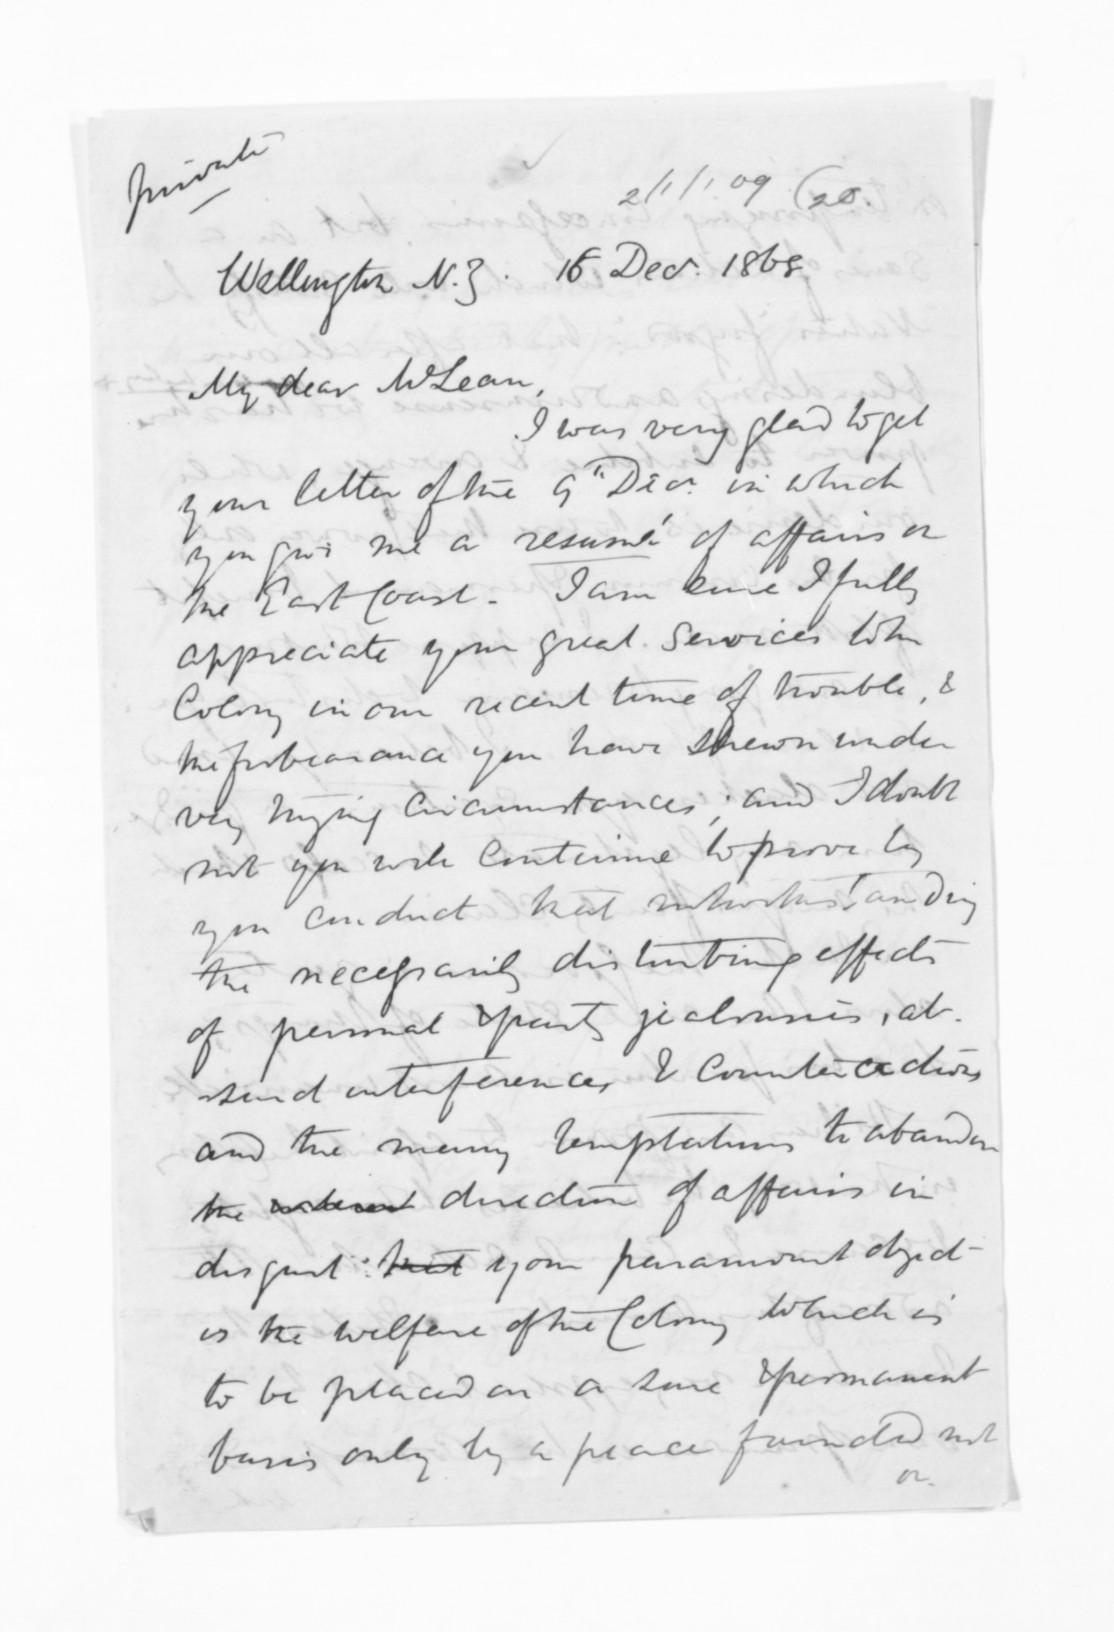 Private
2/1/1 09 (20.
Wellington N.Z. 16 Decr. 1868
My dear McLean,
I was very glad to get
your letter of the 9th Decr. in which
you give me a resumé of affairs on
the East Coast. I am sure I fully
appreciate your great services to the
Colony in our recent time of trouble, &
the forbearance you have shewn under
very trying circumstances; and I doubt
not you will continue to prove by
your conduct that notwithstanding
the necessarily disturbing effects
of personal & party jealousies, ab-
surd interferences & counteractions
and the many temptations to abandon
the interest direction of affairs in
disgust: that your paramount object
is the welfare of the Colony which is
to be placed on a sure & permanent
basis only by a peace founded not
on